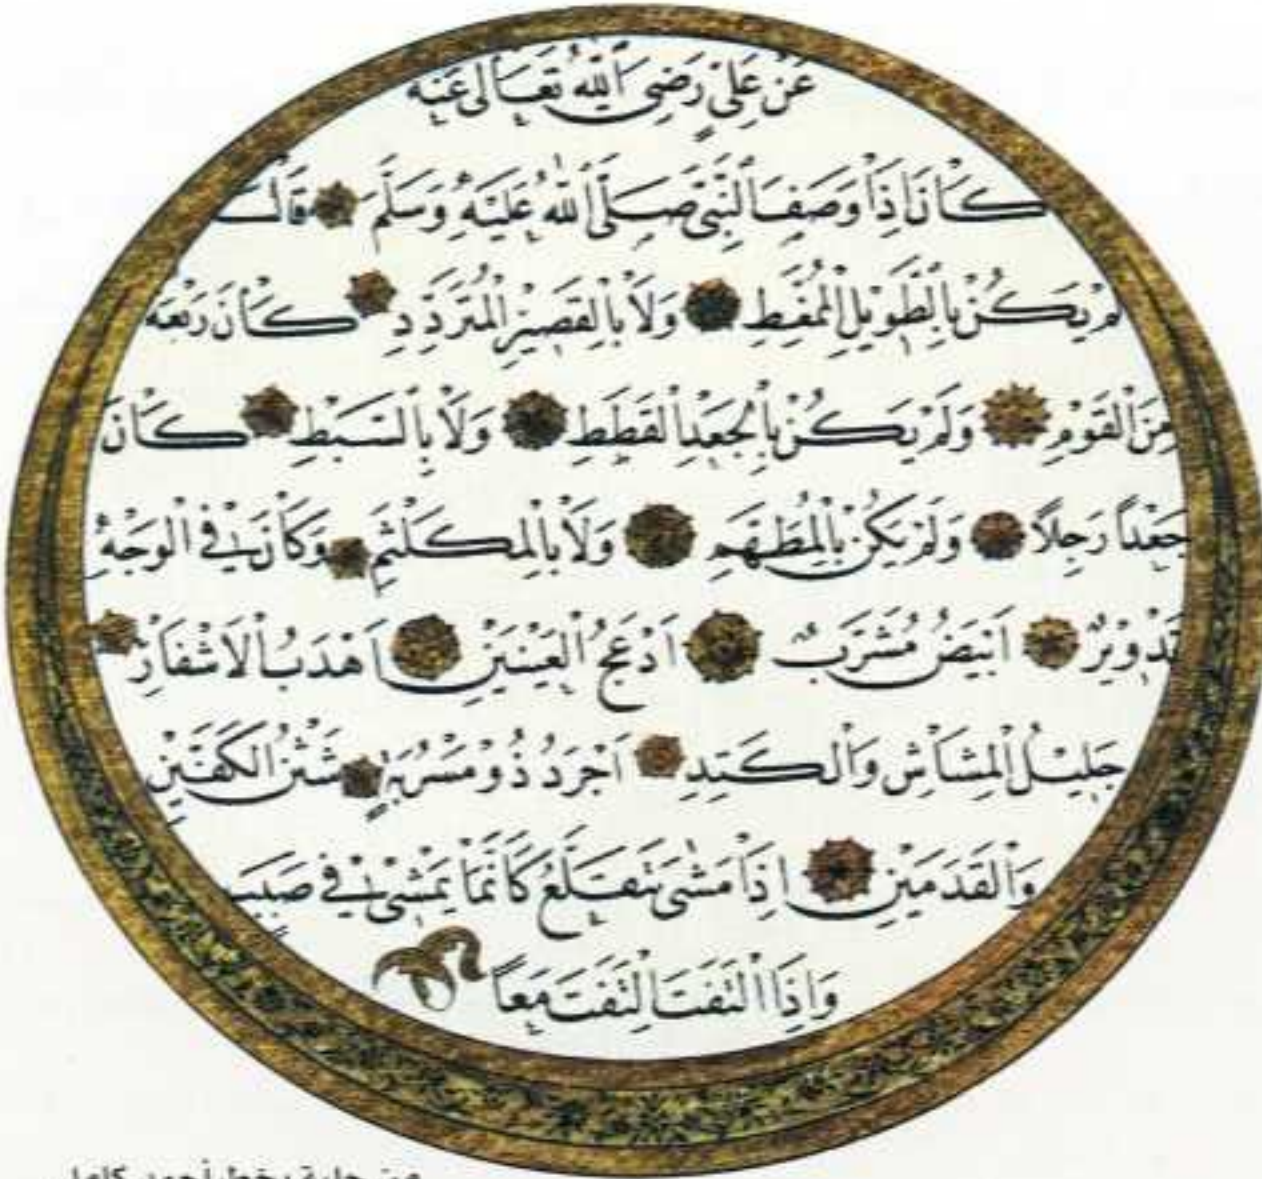 عَنْ عَلِيٍّ رَضِيَ اللهُ تَعَالَى عَنْهُ
كَانَ إِذَا وَصَفَ النَّبِيَّ صَلَّى اللهُ عَلَيْهِ وَسَلَّمَ قَالَ
لَمْ يَكُنْ بِالطَّوِيلِ الْمُمَّغِطِ وَلَا بِالْقَصِيرِ الْمُتَرَدِّدِ كَانَ رَبْعَةً
مِنَ الْقَوْمِ وَلَمْ يَكُنْ بِالْجَعْدِ الْقَطَطِ وَلَا بِالسَّبْطِ كَانَ
جَعْدًا رَجِلًا وَلَمْ يَكُنْ بِالْمُطَهَّمِ وَلَا بِالْمُكَلْثَمِ وَكَانَ فِي الْوَجْهِ
تَدْوِيرٌ اَبْيَضُ مُشَرَّبٌ اَدْعَجُ الْعَيْنَيْنِ اَهْدَبُ الْاَشْفَارِ
جَلِيلُ الْمُشَاشِ وَالْكَتَدِ اَجْرَدُ ذُو مَسْرُبَةٍ شَثْنُ الْكَفَّيْنِ
وَالْقَدَمَيْنِ اِذَا مَشَى تَقَلَّعَ كَاَنَّمَا يَمْشِي فِي صَبَبٍ
وَاِذَا الْتَفَتَ الْتَفَتَ مَعًا